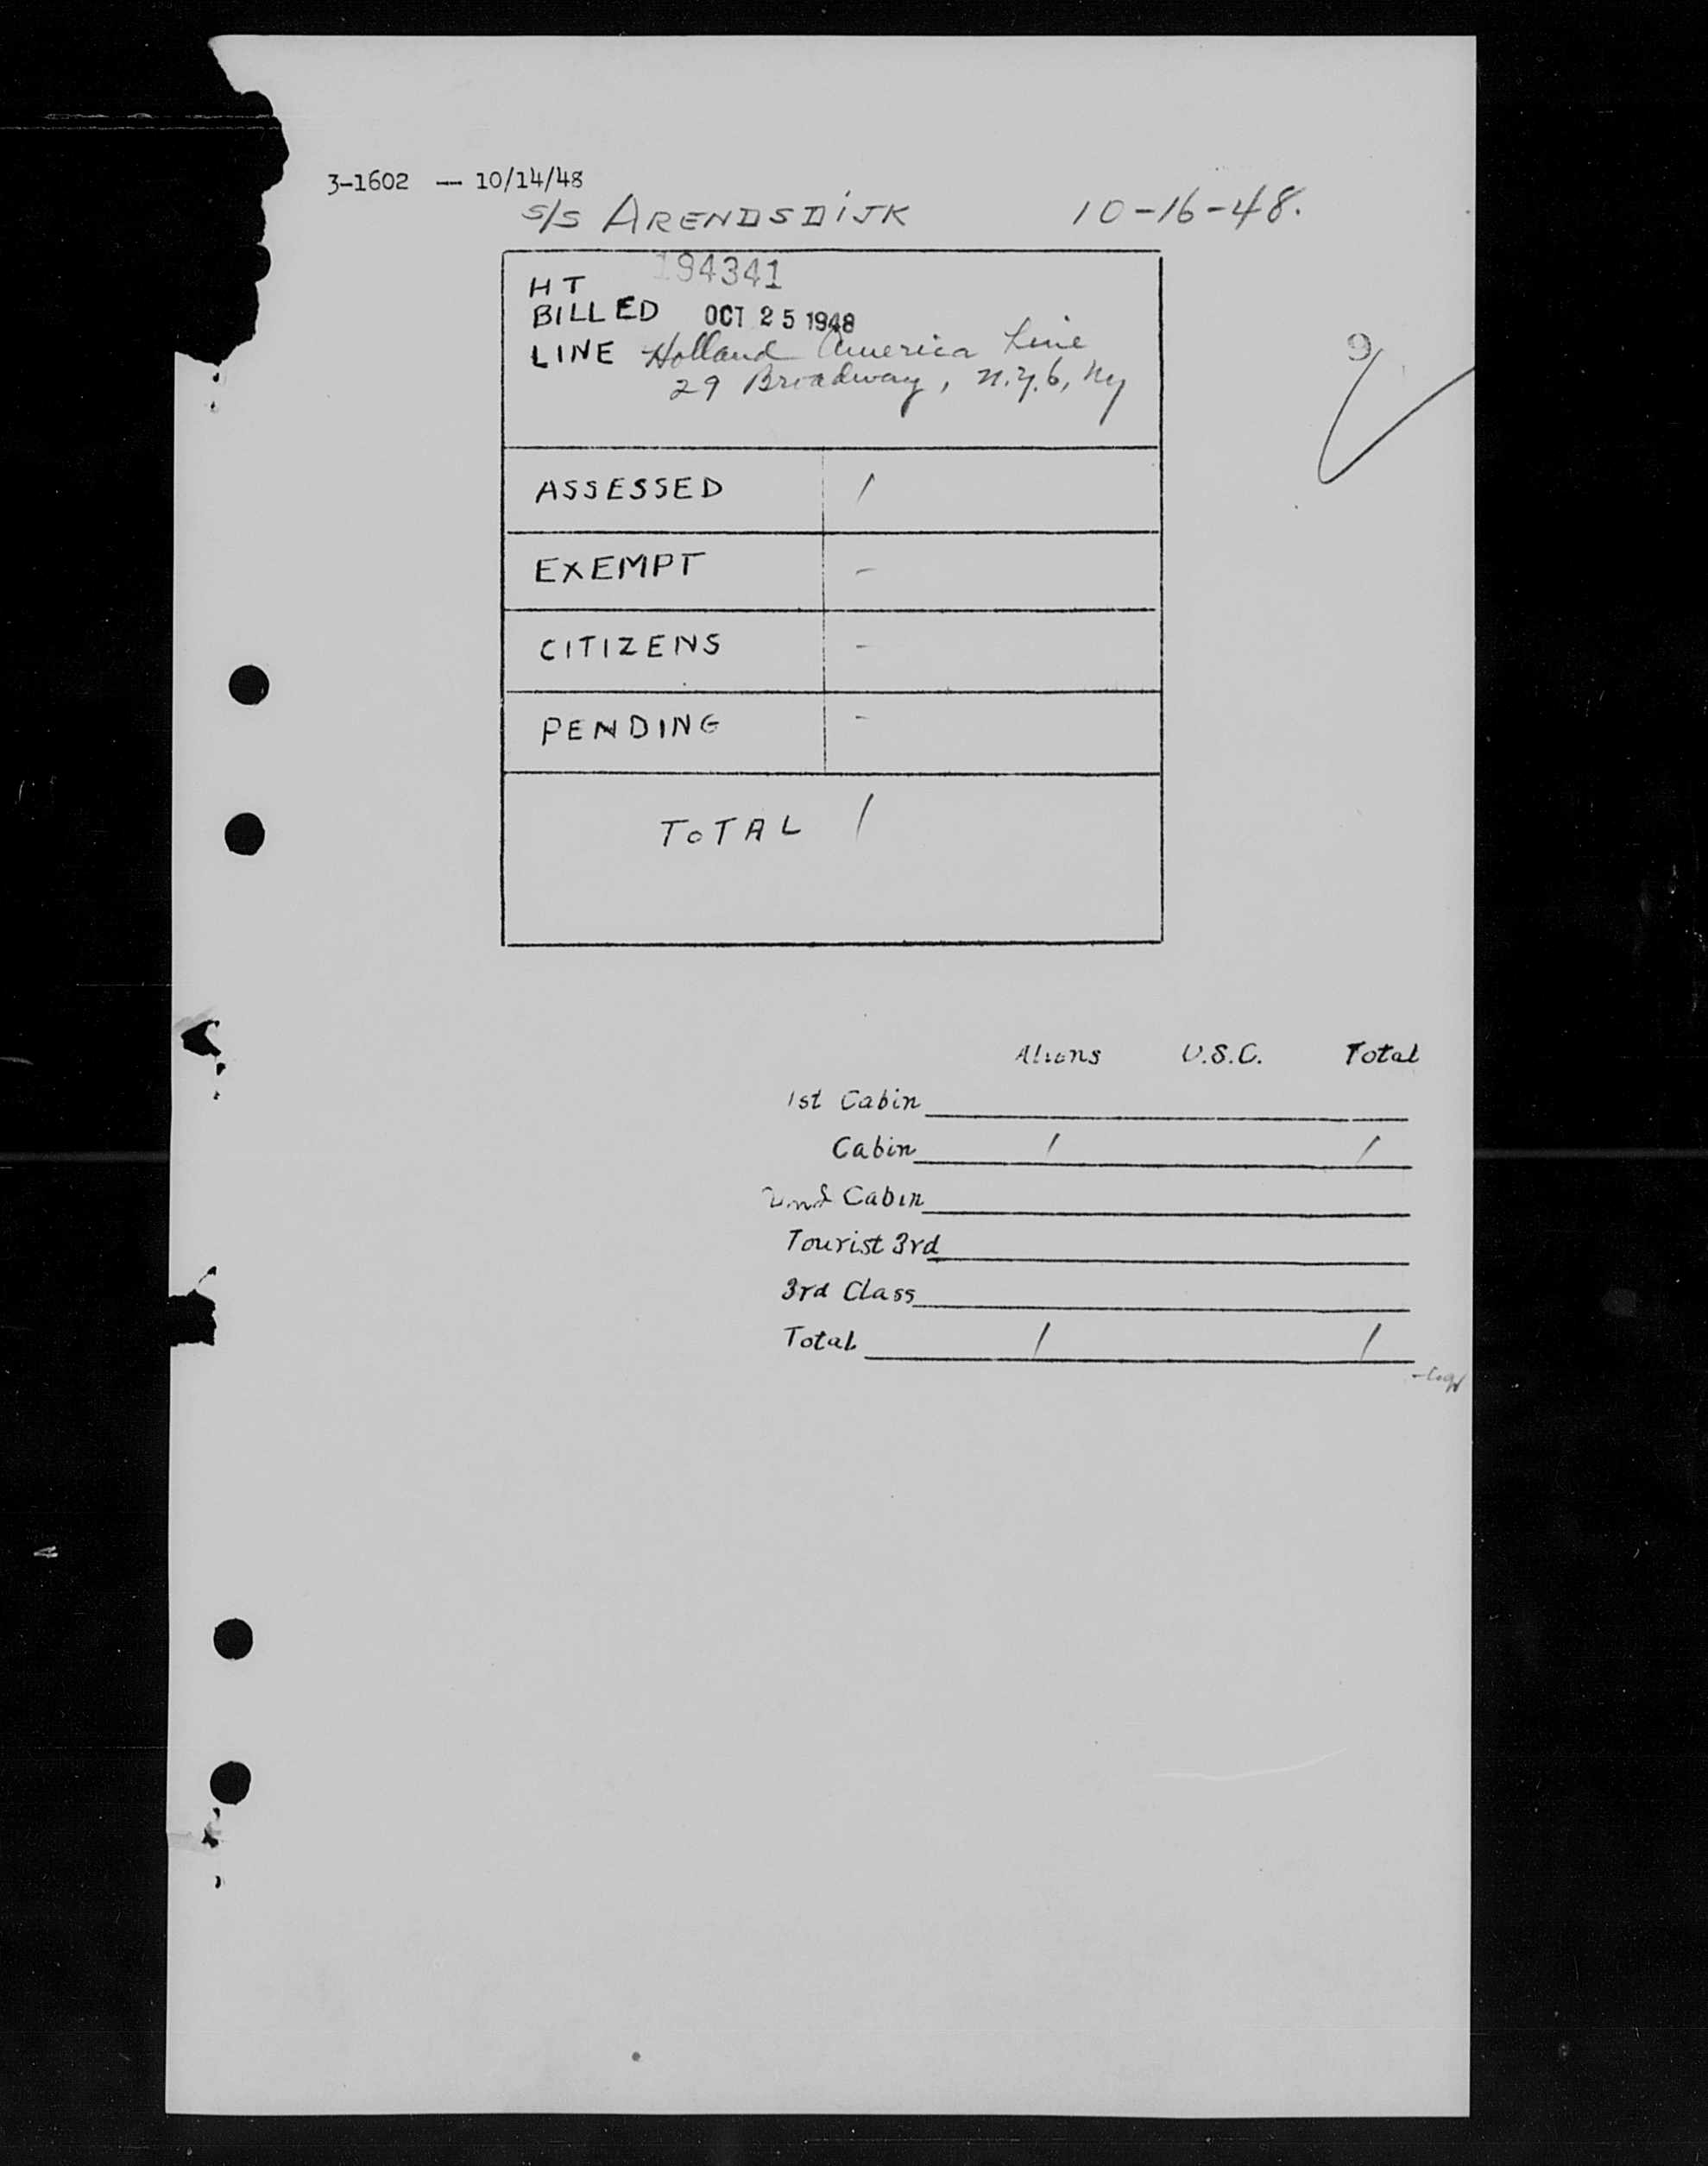 3-1602 — 10/14/48
S/S ARENDSDIJK 10-16-48.
194341
HT
BILLED OCT 25 1948
LINE Holland America Line
29 Broadway, N.Y. 6, NY
9
ASSESSED 1
EXEMPT -
CITIZENS -
PENDING -
TOTAL 1
Aliens U.S.C. Total
1st Cabin
Cabin 1 1
2nd Cabin
Tourist 3rd
3rd Class
Total 1 1